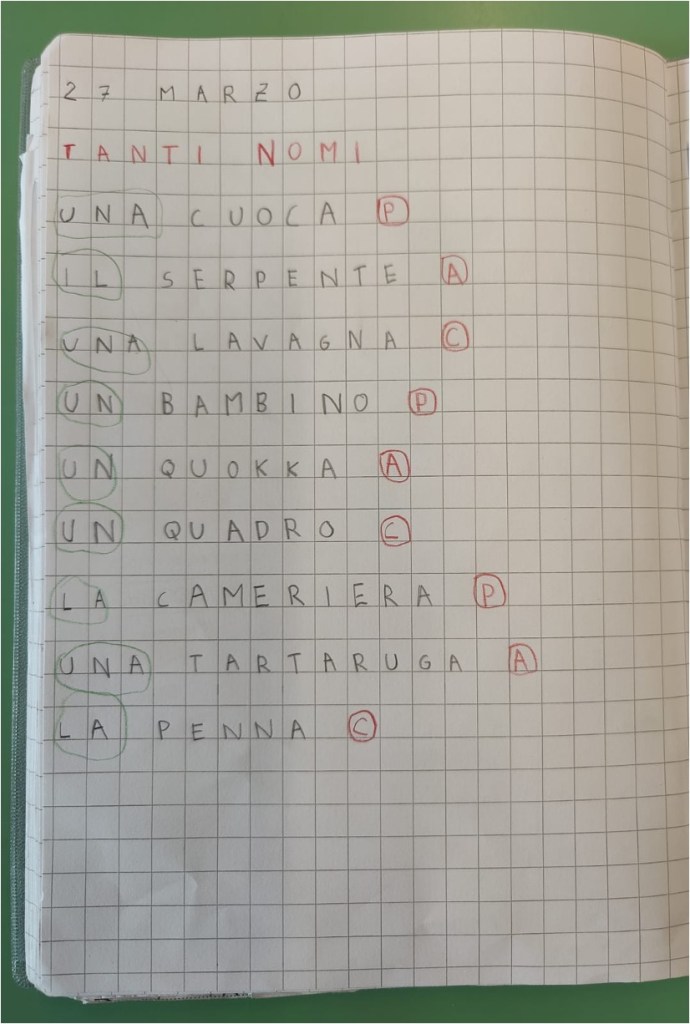 27 MARZO
TANTI NOMI
UNA CUOCA P
IL SERPENTE A
UNA LAVAGNA C
UN BAMBINO P
UN QUOKKA A
UN QUADRO C
LA CAMERIERA P
UNA TARTARUGA A
LA PENNA C